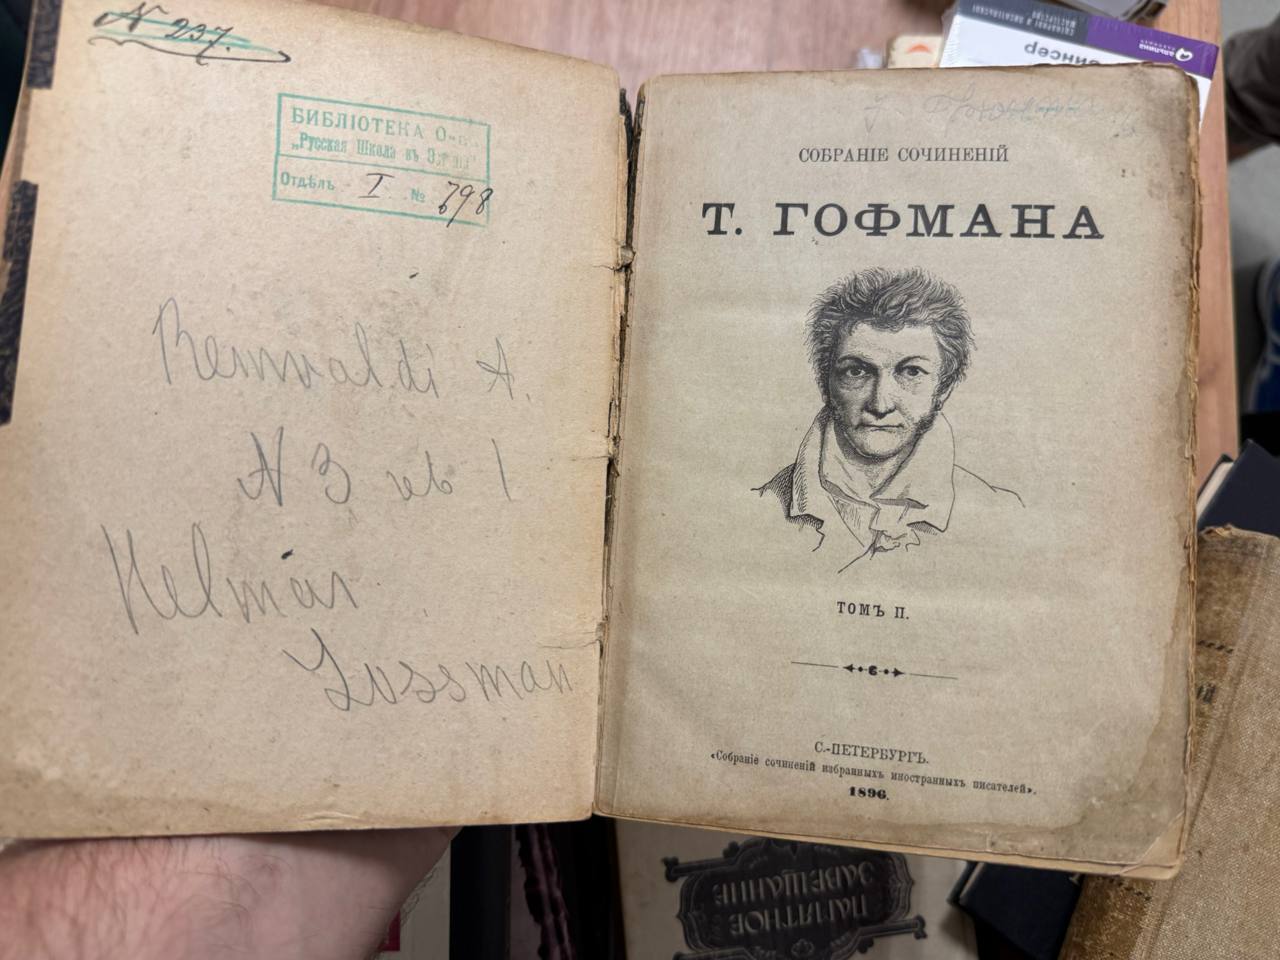 N 237.
БИБЛІОТЕКА О-в
„Русская Школа въ
Отдѣлъ I № 798
Renwaldi A.
N 3 1
Helmar
Lussman
СОБРАНІЕ СОЧИНЕНІЙ
Т. ГОФМАНА
ТОМЪ II.
С.-ПЕТЕРБУРГЪ.
«Собраніе сочиненій избранныхъ иностранныхъ писателей».
1896.
альпина
ПАМЯТНОЕ
ЗАВЕЩАНІЕ